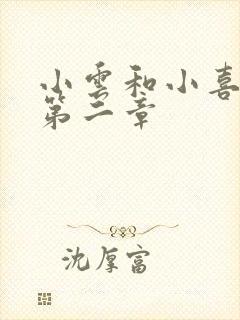 小雲和小喜
第二章
沈厚富